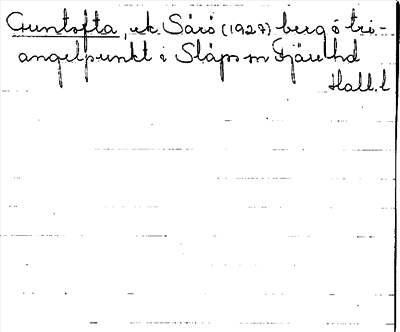 Guntofta, ek Särö (1927) berg ó tri-
angelpunkt i Släps sn Fjäre hd
Hall. l